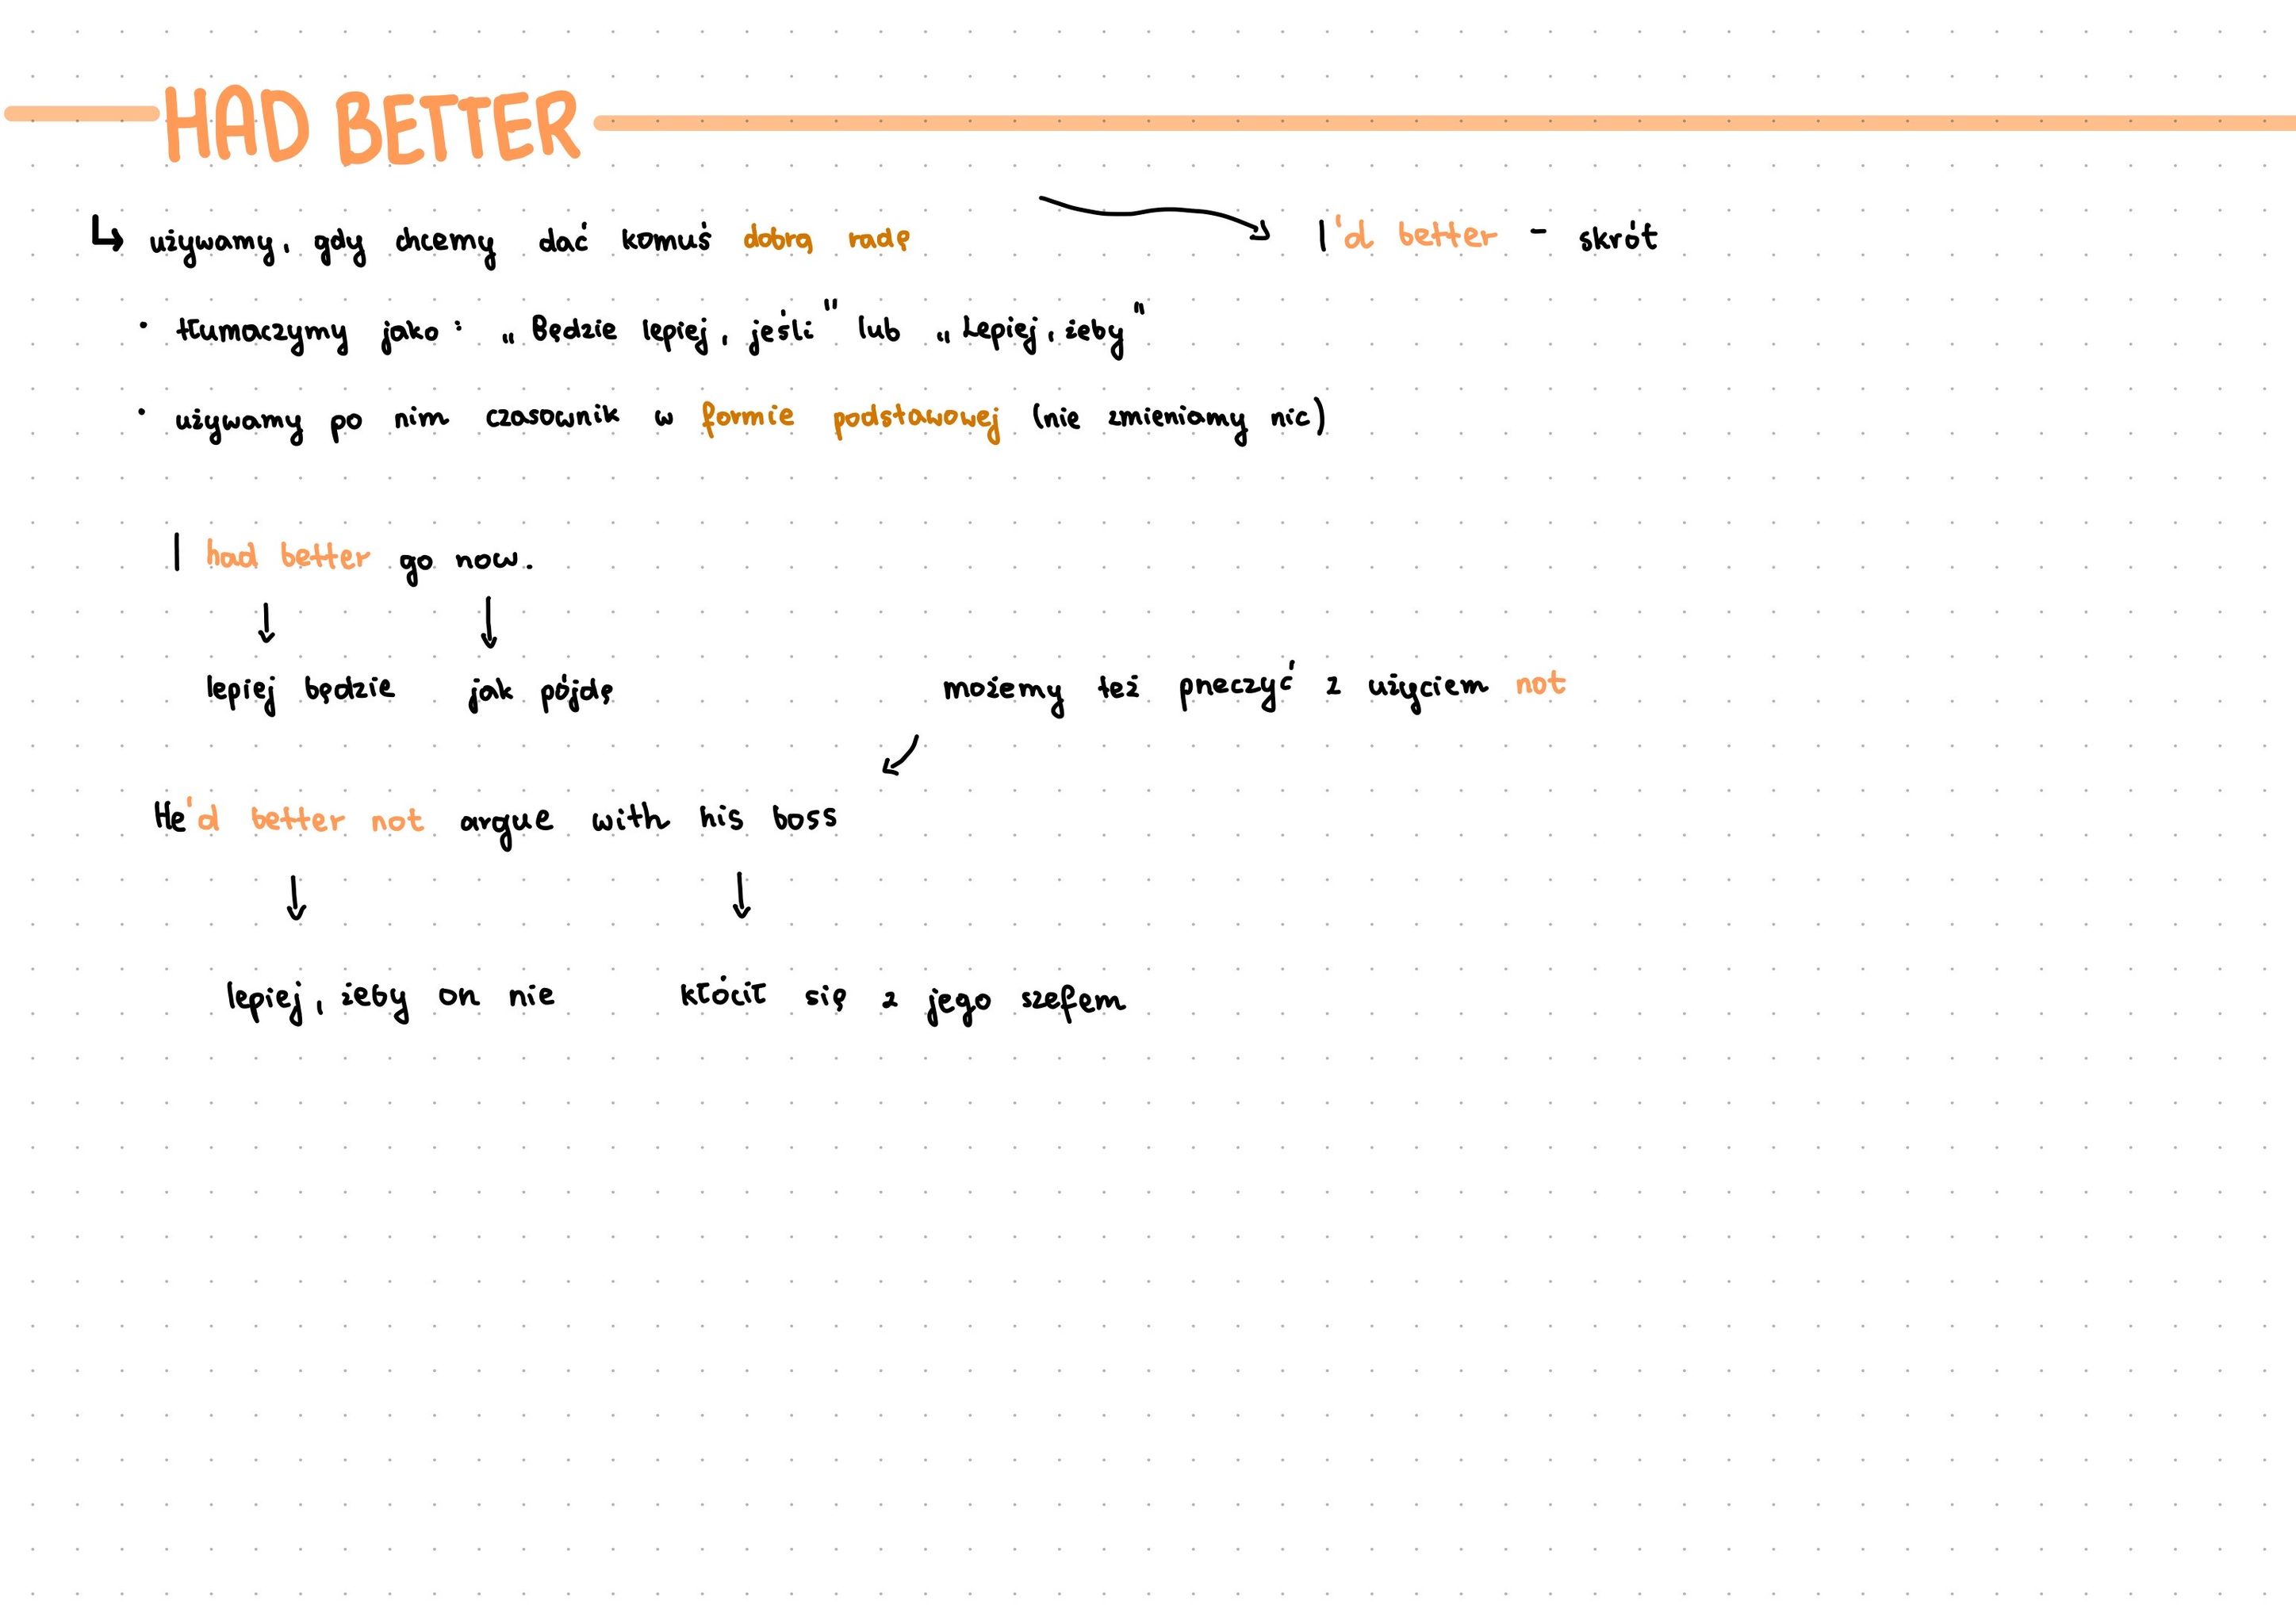 HAD BETTER
↳ używamy, gdy chcemy dać komuś dobrą radę
I'd better - skrót
• tłumaczymy jako: „Będzie lepiej, jeśli" lub „Lepiej, żeby"
• używamy po nim czasownik w formie podstawowej (nie zmieniamy nic)
I had better go now.
lepiej będzie jak pójdę
możemy też przeczyć z użyciem not
He'd better not argue with his boss
lepiej, żeby on nie kłócił się z jego szefem